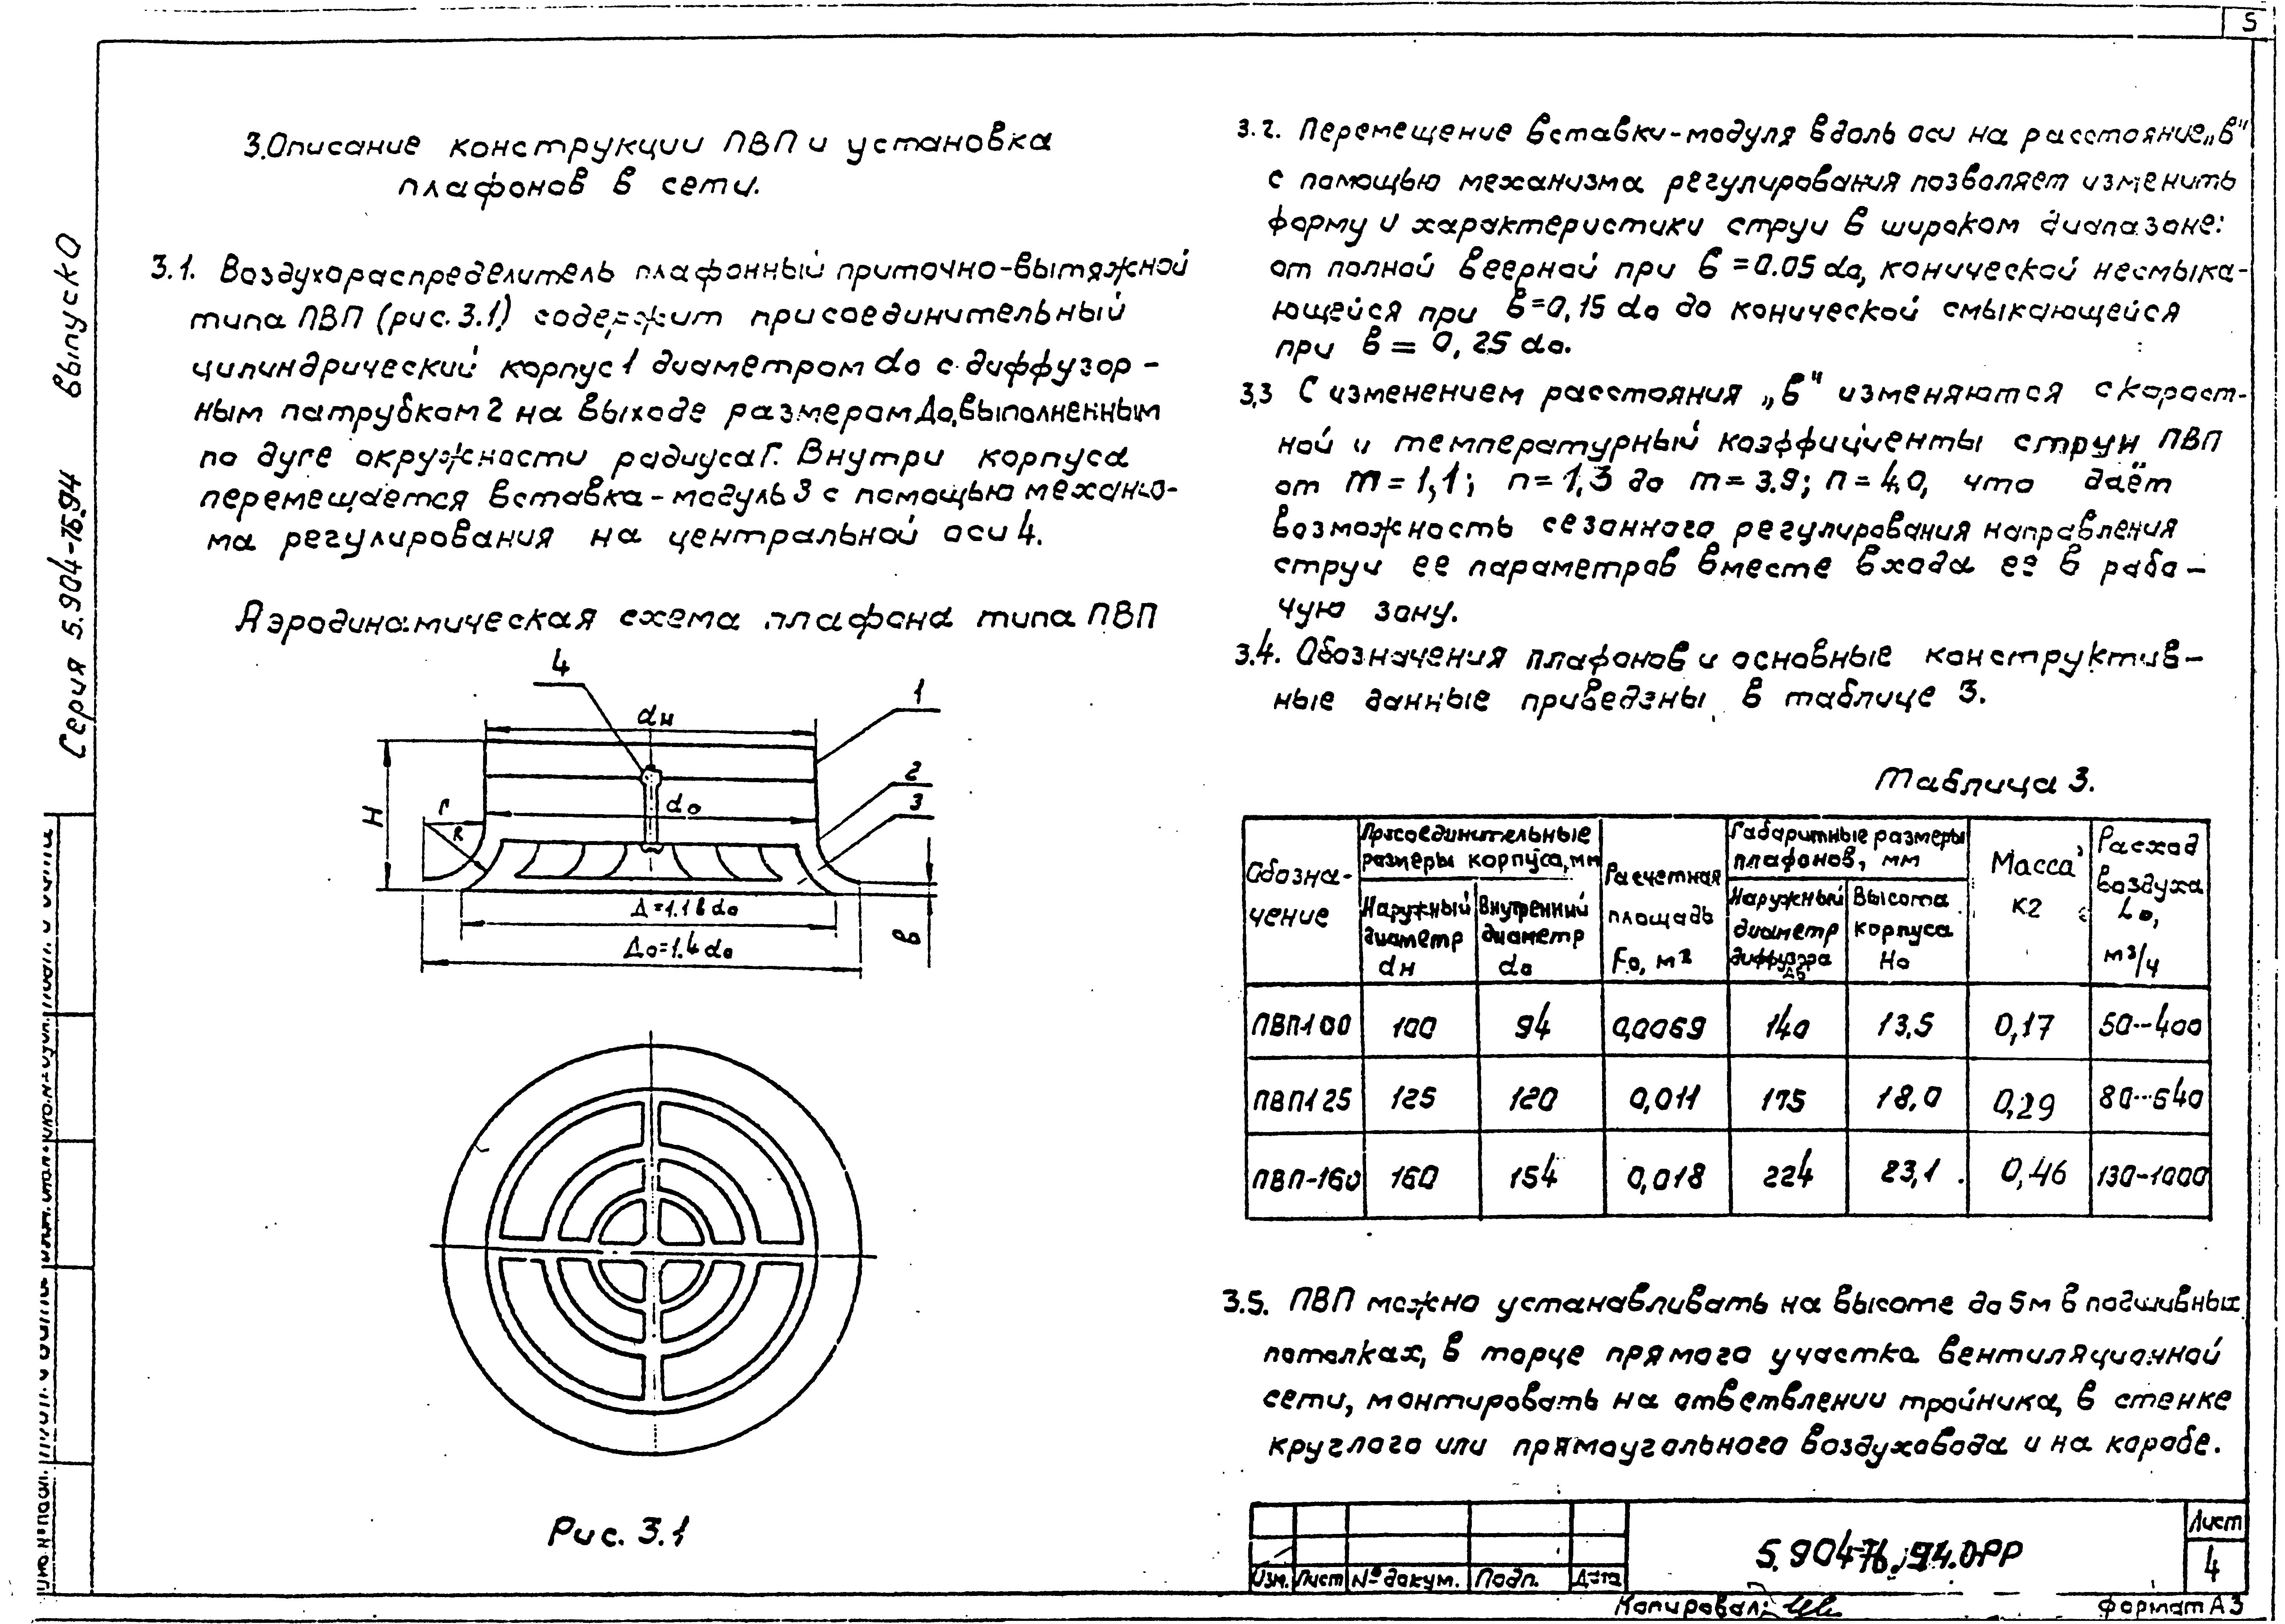 5
Серия 5.904-76.94 выпуск 0
3. Описание конструкции ПВП и установка
плафонов в сети.
3.1. Воздухораспределитель плафонный приточно-вытяжной
типа ПВП (рис. 3.1) содержит присоединительный
цилиндрический корпус 1 диаметром dо с диффузор-
ным патрубком 2 на выходе размером До, выполненным
по дуге окружности радиуса Г. Внутри корпуса
перемещается вставка-модуль 3 с помощью механиз-
ма регулирования на центральной оси 4.
Аэродинамическая схема плафона типа ПВП
4
1
dн
2
3
r
R
dо
Н
Д=1.18 dо
До=1.4 dо
в
Рис. 3.1
3.2. Перемещение вставки-модуля вдоль оси на расстояние „в"
с помощью механизма регулирования позволяет изменить
форму и характеристики струи в широком диапазоне:
от полной веерной при в = 0.05 dо, конической несмыка-
ющейся при в=0,15 dо до конической смыкающейся
при в = 0,25 dо.
3.3 С изменением расстояния „в" изменяются скорост-
ной и температурный коэффициенты струи ПВП
от m = 1,1; n = 1,3 до m = 3.9; n = 4.0, что даёт
возможность сезонного регулирования направления
струи ее параметров вместе входа ее в рабо-
чую зону.
3.4. Обозначения плафонов и основные конструктив-
ные данные приведены в таблице 3.
Таблица 3.
Обозна-
чение
Присоединительные
размеры корпуса, мм
Наружный
диаметр
dн
Внутренний
диаметр
dо
Расчетная
площадь
Fо, м²
Габаритные размеры
плафонов, мм
Наружный
диаметр
диффузора
До
Высота
корпуса
Но
Масса,
кг
Расход
воздуха
Lо,
м³/ч
ПВП100 100 94 0,0069 140 13,5 0,17 50...400
ПВП125 125 120 0,011 175 18,0 0,29 80...640
ПВП-160 160 154 0,018 224 23,1 0,46 130-1000
3.5. ПВП можно устанавливать на высоте до 5м в подшивных
потолках, в торце прямого участка вентиляционной
сети, монтировать на ответвлении тройника, в стенке
круглого или прямоугольного воздуховода и на коробе.
Изм. Лист № докум. Подп. Дата
5.904-76.94.0-РР
Лист
4
Копировал:
Формат А3